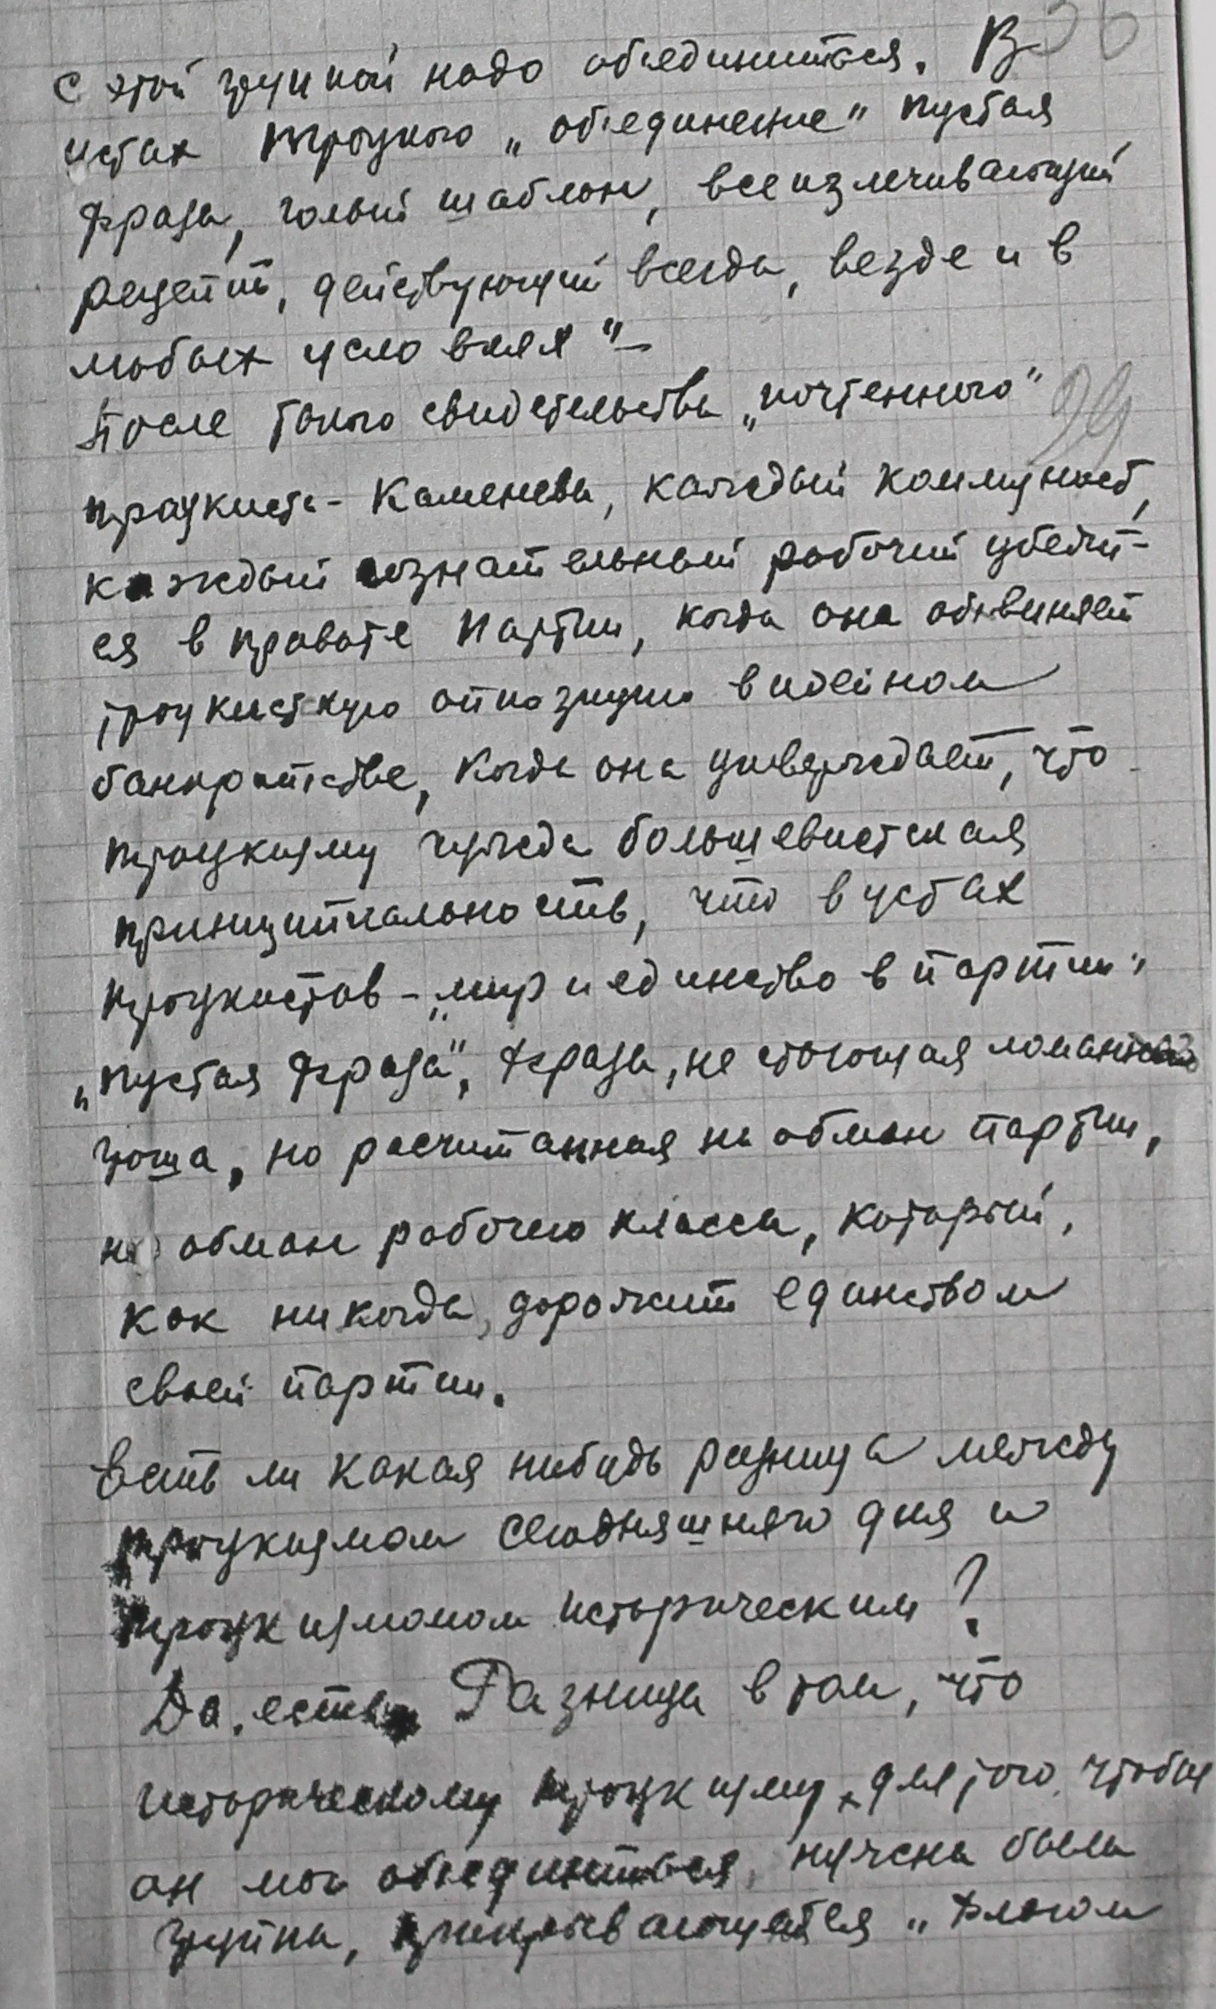 с этой групой надо объединиться. В 36
устах Троцкого „объединение" пустая
фраза, голый шаблон, всеизлечивающий
рецепт, действующий всегда, везде и в
любых условиях"—
После такого свидетельства „почтенного" 29
троцкиста - Каменева, каждый коммунист,
каждый сознательный рабочий убедит-
ся в правоте партии, когда она обвиняет
троцкисткую оппозицию в идейном
банкротстве, когда она утверждает, что
троцкизму чужда большевистская
принципиальность, что в устах
троцкистов - „мир и единство в партии"
„пустая фраза", фраза, не стоющая ломанного
гроша, но расчитанная на обман партии,
на обман рабочего класса, который,
как никогда, дорожит единством
своей партии.
Есть ли какая нибудь разница между
троцкизмом сегодняшнего дня и
троцкизмомом историческим?
Да, есть. Разница в том, что
историческому троцкизму, для того, чтобы
он мог объединиться, нужна была
група, прикрывающаяся „флагом